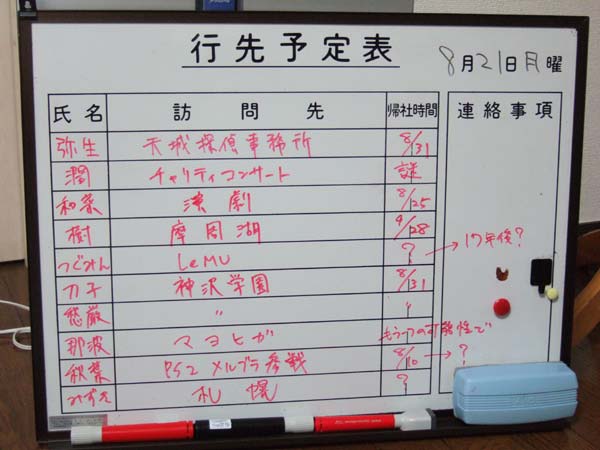 行先予定表 8月21日月曜
氏名 訪問先 帰社時間 連絡事項
弥生 天城探偵事務所 8/31
潤 チャリティコンサート 謎
和菜 演劇 8/25
樹 摩周湖 9/28
つぐみん LeMU ? → 17年後?
刀子 神沢学園 8/31
悠厳 〃 〃
那波 マヨヒガ もう一つの可能性で
秋葉 PS2 メルブラ参戦 8/10 → ?
みずえ 札幌 ?